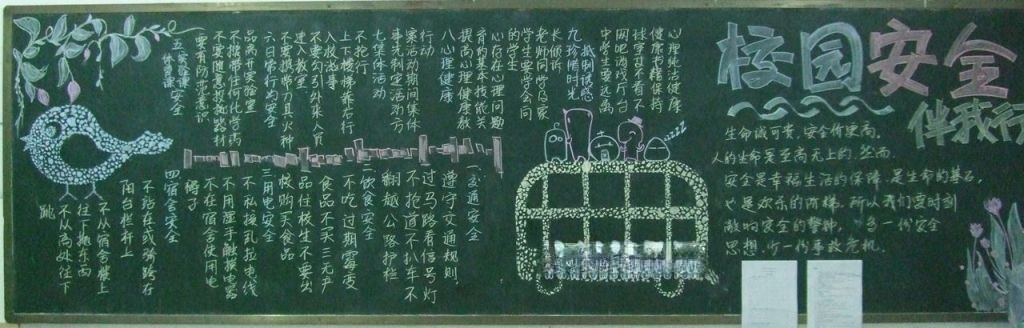 校园安全
伴我行
生命诚可贵,安全价更高,
人的生命是至高无上的.然而.
安全是幸福生活的保障,是生命的基石,
也是欢乐的阶梯.所以我们要时刻
敲响安全的警钟,多一份安全
思想,少一份事故危机.
一、交通安全
遵守交通规则,
过马路看信号灯
不抢道不扒车不
翻越公路护栏
二、饮食安全
不吃过期霉变
食品不买三无产
品住校生不要出
校购买食品
三用电安全
不私接乱拉电线
不用湿手触摸电器
不在宿舍使用电
四宿舍安全
不站在或骑跨在
阳台栏杆上
不从宿舍楼上
往下抛东西
不从高处往下
跳
五、实验课
体育课安全
要有防范意识
不随意
不携带任何化学药
品离开实验室
六日常行为安全
不要携带刀具火种
进入教室
不要勾引外来人员
入校滋事
上下楼梯靠右行
不抢行
七集体活动
事先制定活动方
案活动期间集体
行动
八心理健康
提高心理健康教
育的基本技能关
心存在心理问题
的学生
学生要学会向
老师同学及家
长倾诉
九珍惜时光
抵制诱惑
中学生要远离
网吧游戏厅台
球室
健康书籍保持
心理纯洁健康
zzz